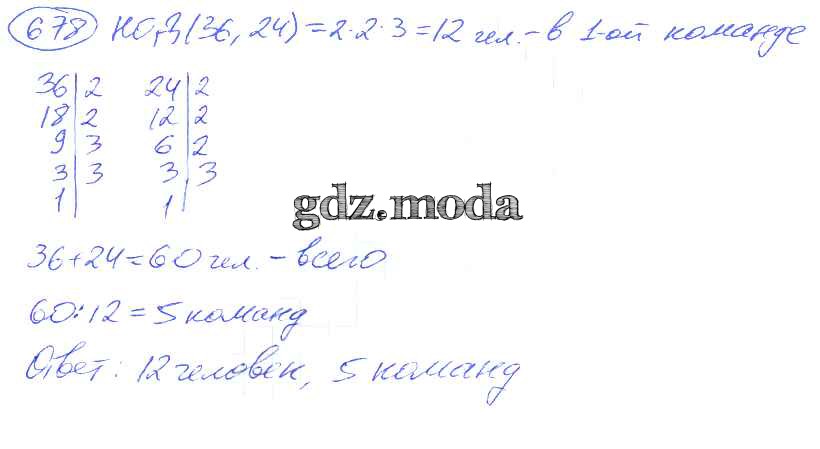 678 НОД (36, 24) = 2·2·3 = 12 чел. – в 1-ой команде
36 | 2 24 | 2
18 | 2 12 | 2
9 | 3 6 | 2
3 | 3 3 | 3
1 | 1 |
gdz.moda
36+24=60 чел. – всего
60:12=5 команд
Ответ: 12 человек, 5 команд